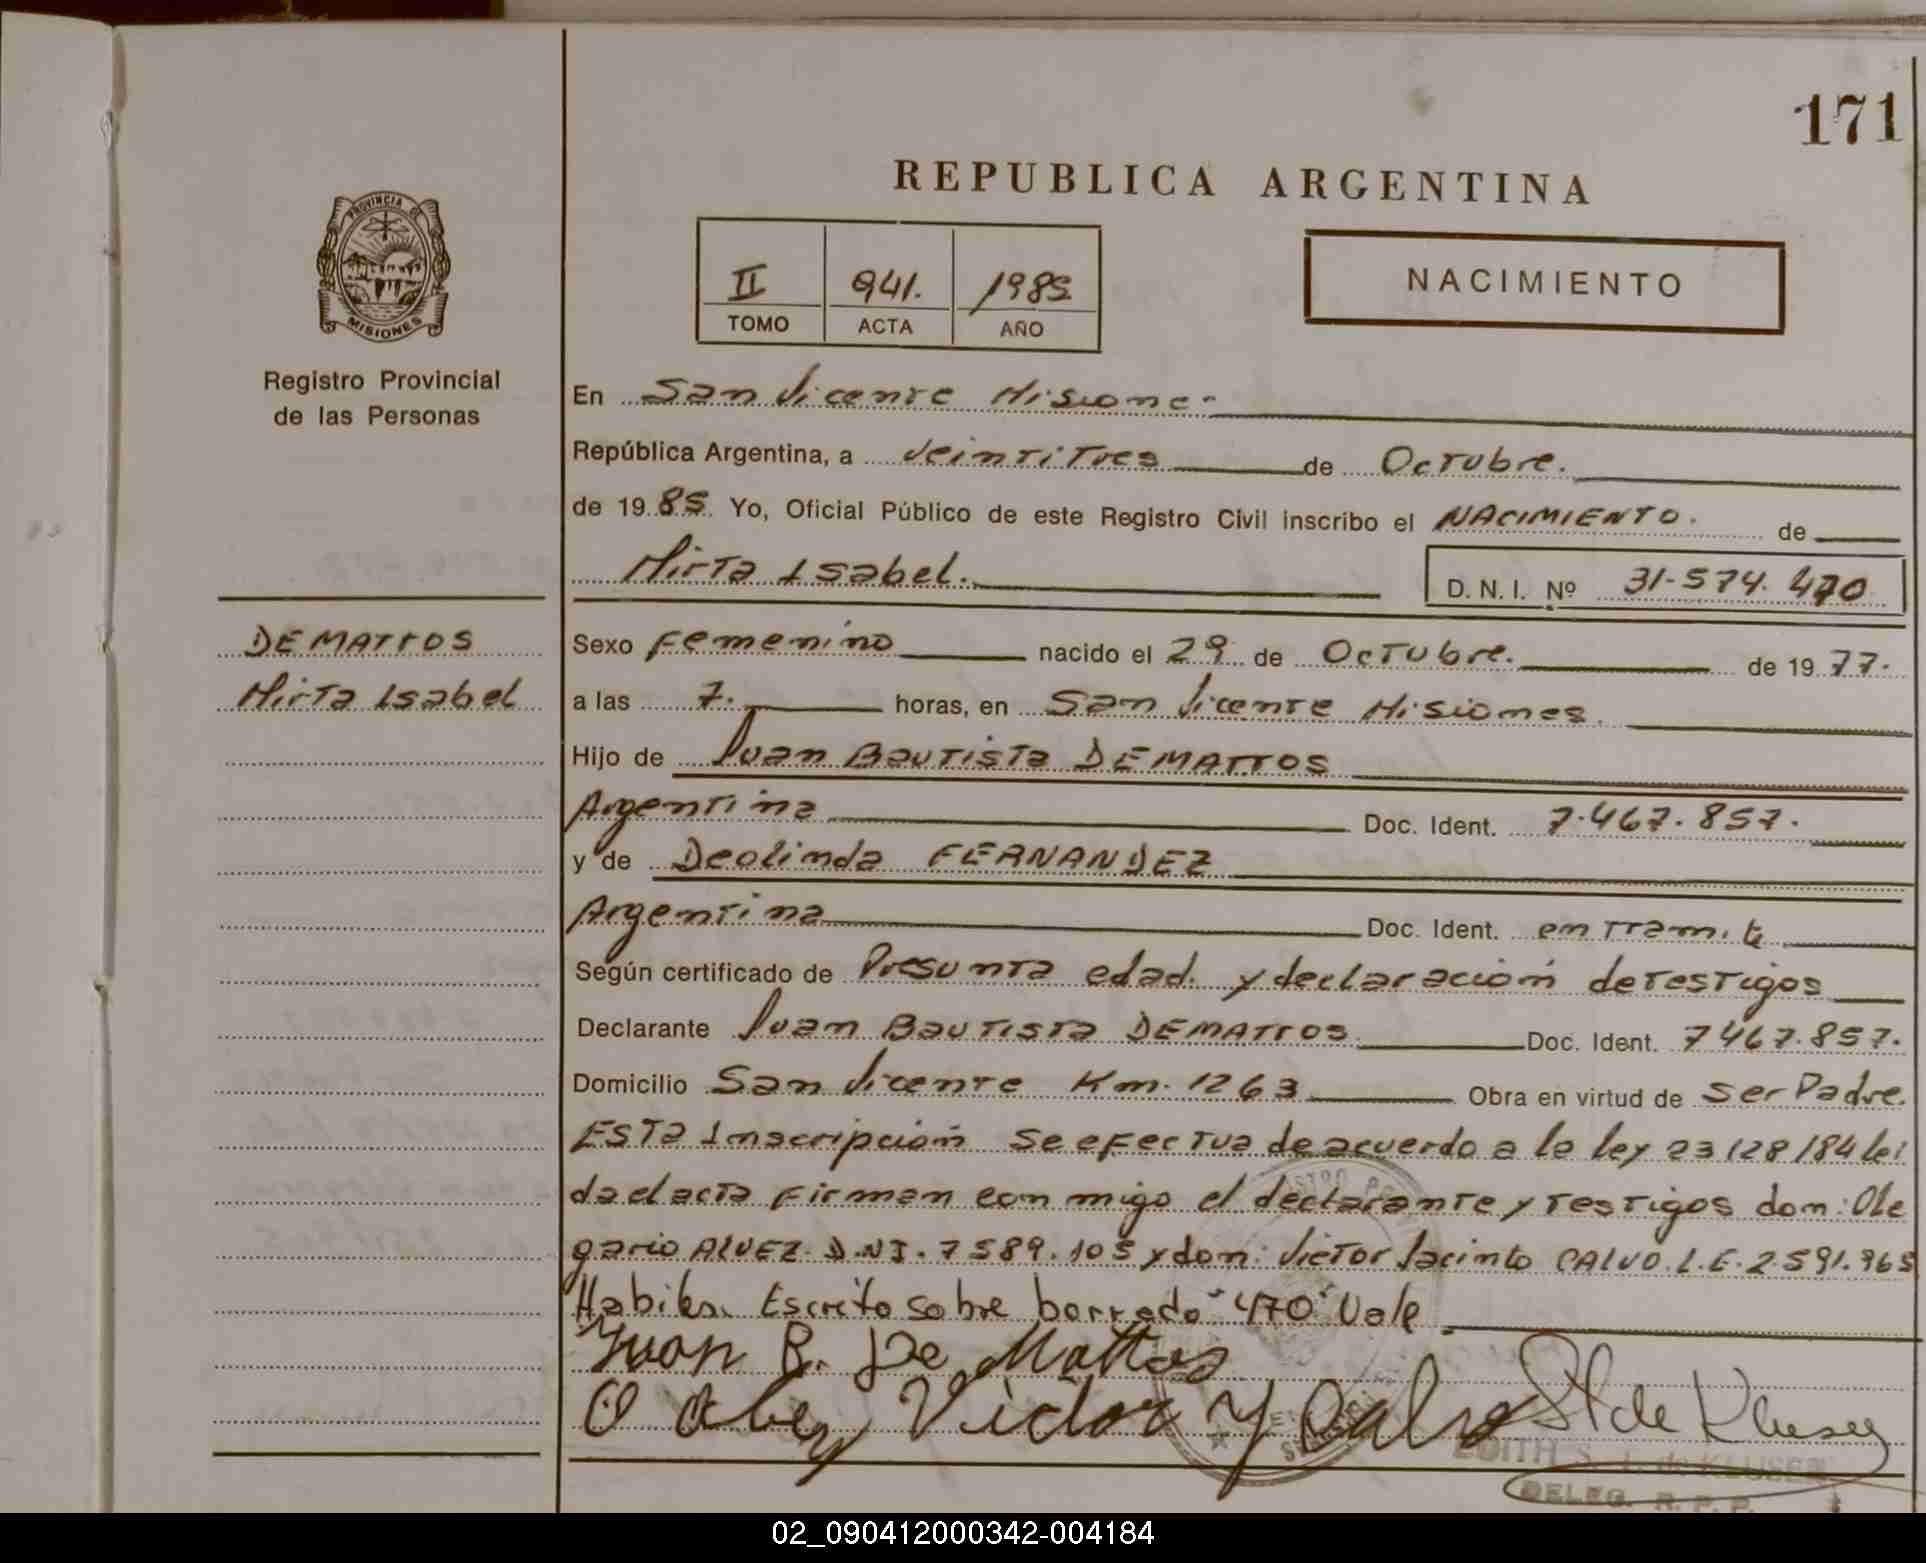 171
REPUBLICA ARGENTINA
PROVINCIA DE
MISIONES
Registro Provincial
de las Personas
II 941. 1985
TOMO ACTA AÑO
NACIMIENTO
En San Vicente Misiones
República Argentina, a Veintitres de Octubre.
de 1985 Yo, Oficial Público de este Registro Civil inscribo el NACIMIENTO. de
Mirta Isabel. D. N. I. Nº 31-574.470
DEMATTOS
Mirta Isabel
Sexo Femenino nacido el 29 de Octubre. de 1977.
a las 7. horas, en San Vicente Misiones.
Hijo de Juan Bautista DEMATTOS
Argentina Doc. Ident. 7.467.857.
y de Deolinda FERNANDEZ
Argentina Doc. Ident. en tramite
Según certificado de Presunta edad. y declaración de testigos
Declarante Juan Bautista DEMATTOS Doc. Ident. 7467.857.
Domicilio San Vicente Km. 1263 Obra en virtud de Ser Padre.
Esta Inscripción se efectua de acuerdo a la ley 23128/84 lei
da el acta Firman con migo el declarante y testigos don: Ole
gario ALVEZ D.N.I. 7589.105 y don: Victor Jacinto CALVO. L.E. 2.591.965
Habiles. Escrito sobre borrado "470" Vale
Juan B. De Mattos
O Alvez Victor J Calvo St de Klusen
EDITH S. de KLUSEN
DELEG. R. P. P.
02_090412000342-004184